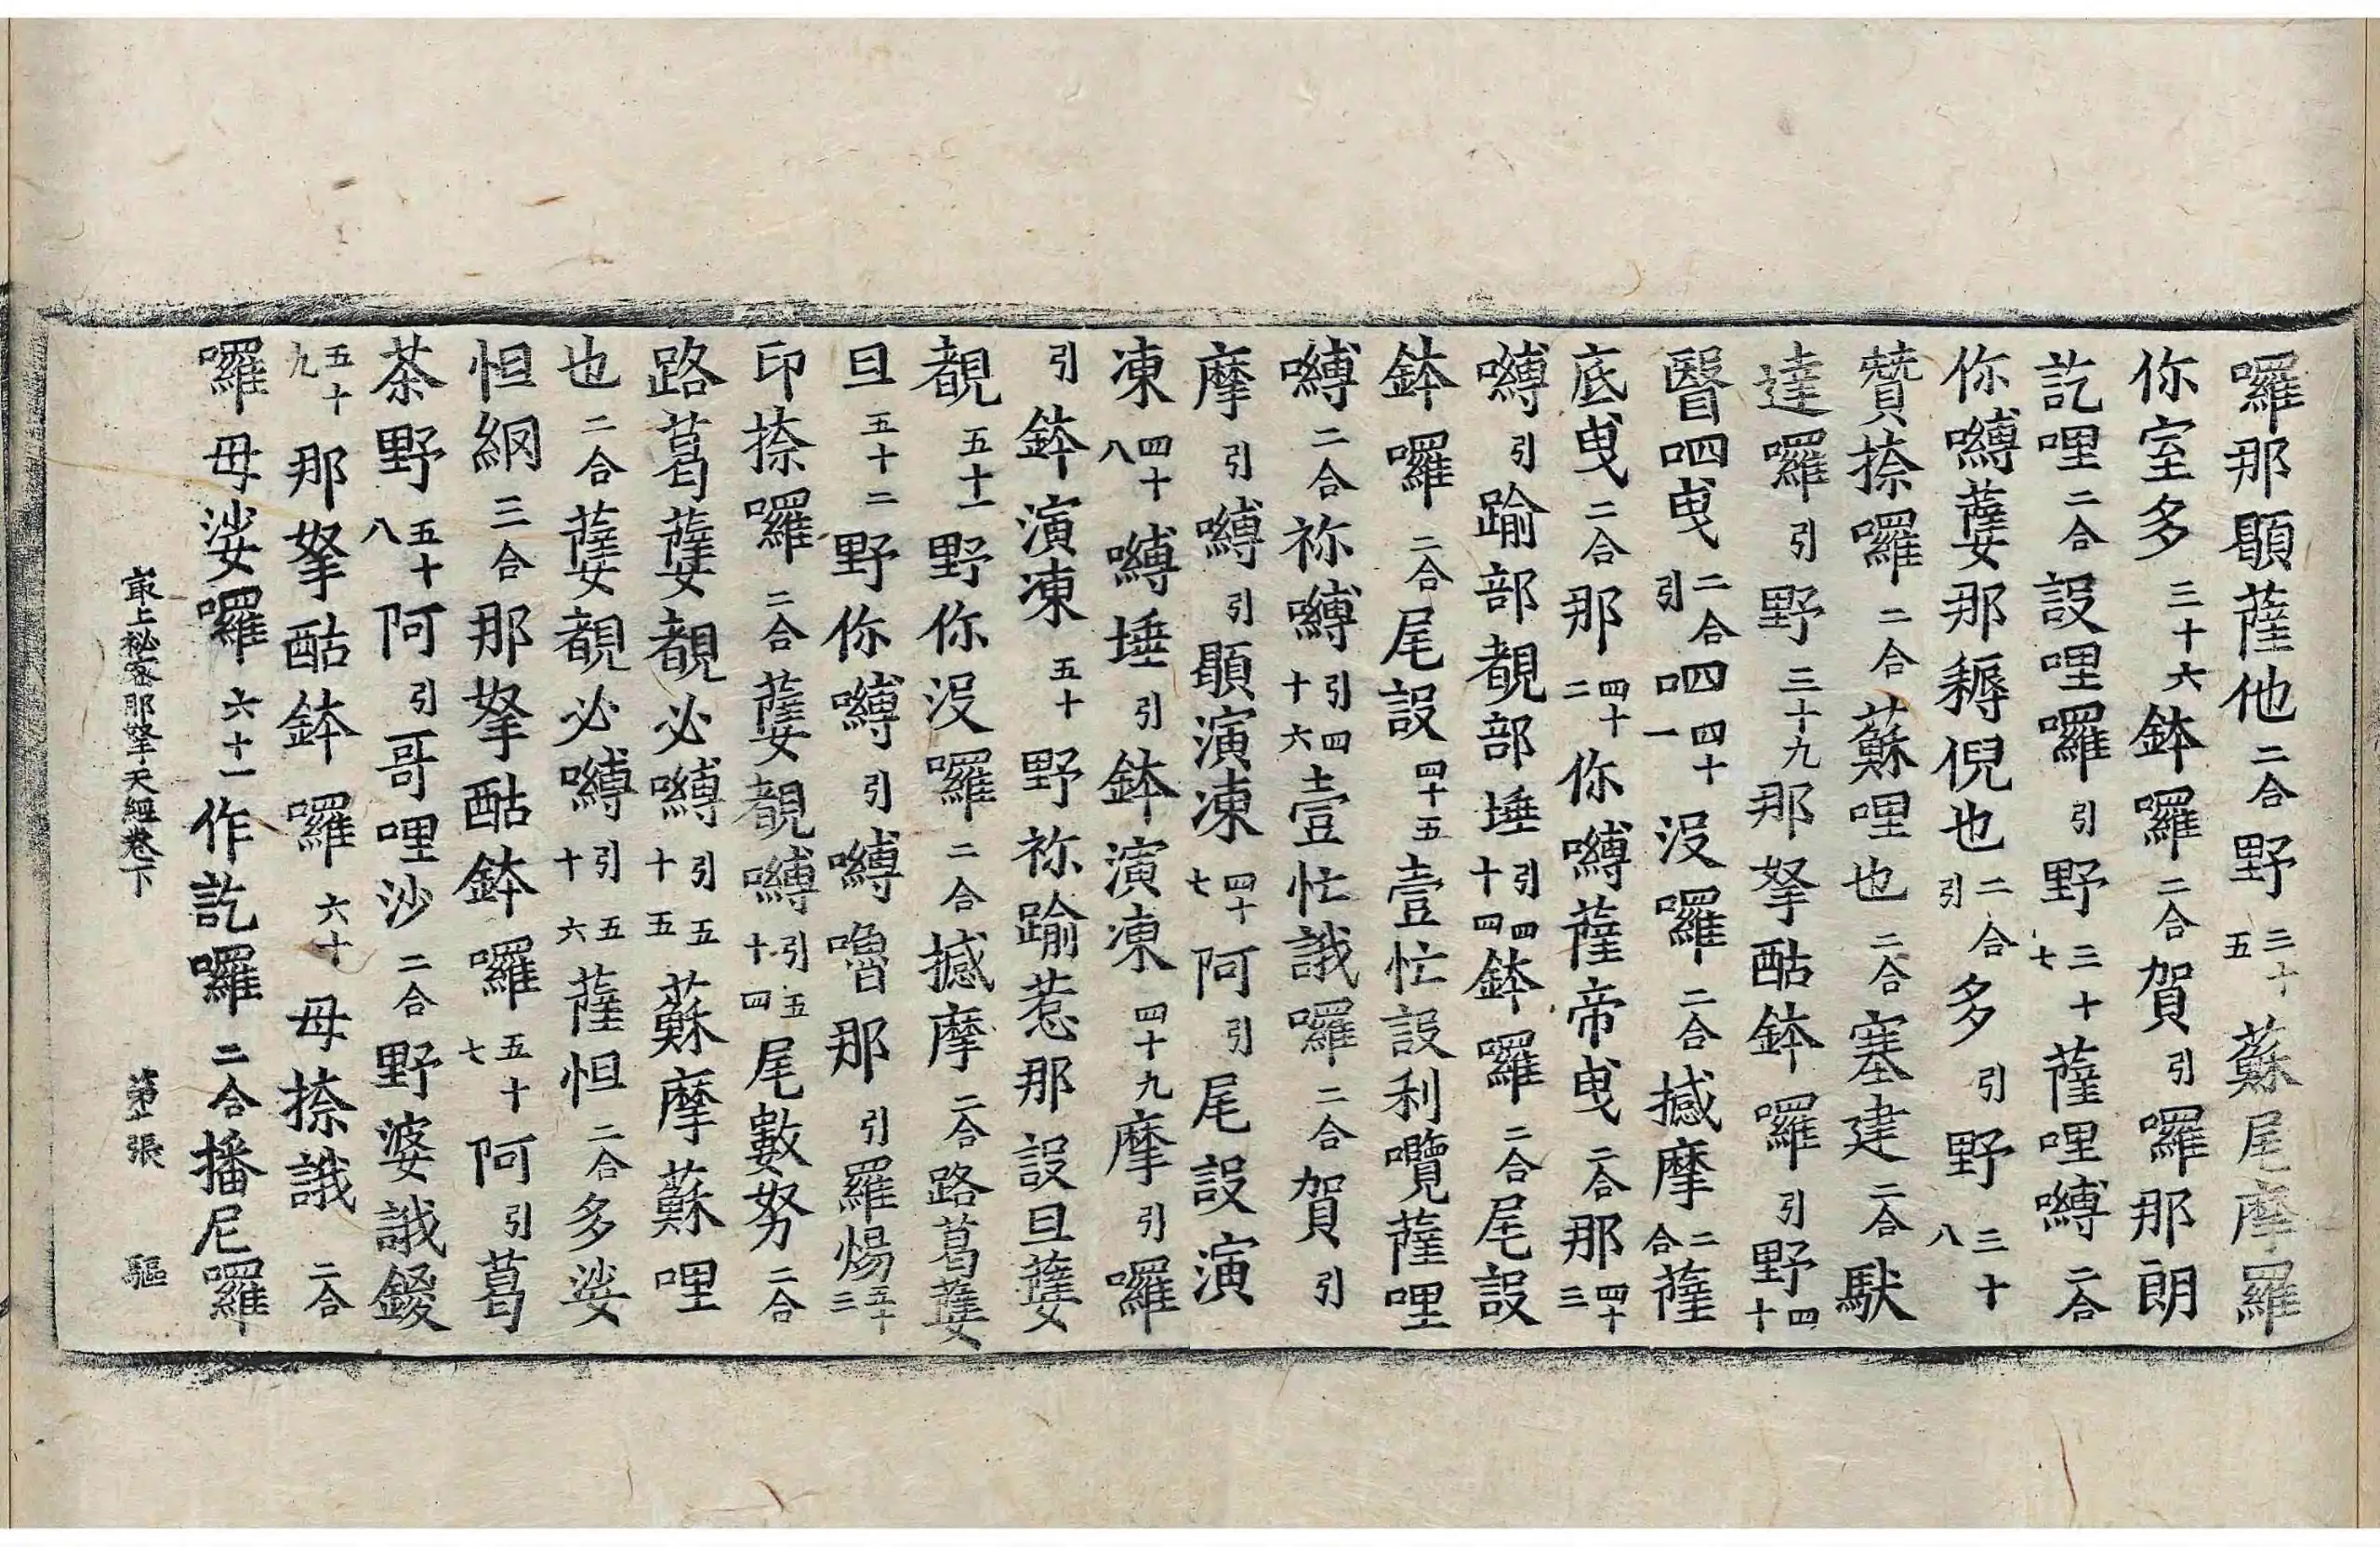 囉那顋薩他二合野三十五蘇尾摩羅
你室多三十六鉢囉二合賀引囉那朗
訖哩二合設哩囉引野三十七薩哩嚩二合
你嚩薩那耨倪也二合引多引野三十八
贊捺囉二合蘇哩也二合塞建二合馱
達囉引野三十九那拏酤鉢囉引野四十
醫呬曳二合引呬四十一沒囉二合撼摩二合薩
底曳二合那四十二你嚩薩帝曳二合那四十三
嚩引踰部覩部埵引四十四鉢囉二合尾設
鉢囉二合尾設四十五壹忙設利囕薩哩
嚩二合祢嚩引四十六壹忙誐囉二合賀引
摩引嚩引顋演凍四十七阿引尾設演
凍四十八嚩埵引鉢演凍四十九摩引囉
引鉢演凍五十野祢踰惹那設旦薩
覩五十一野你沒囉二合撼摩二合路葛薩
旦五十二野你嚩引嚩嚕那引羅煬五十三
印捺囉二合薩覩嚩引五十四尾數努二合
路葛薩覩必嚩引五十五蘇摩蘇哩
也二合薩覩必嚩引五十六薩怛二合多娑
怛綱三合那拏酤鉢囉五十七阿引葛
茶野五十八阿引哥哩沙二合野婆誐鍐
五十九那拏酤鉢囉六十母捺誐二合
囉母娑囉六十一作訖囉二合播尼囉
最上秘密那拏天經卷下 第 張 驅